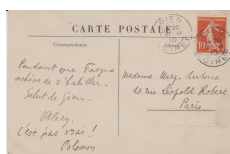 CARTE POSTALE
Correspondance
Adresse
GIEN
Pendant que Fargue
achève de s'habiller.
Salut de Gien.
Valery.
C'est pas vrai !
Madame Marg. Audoux
10 rue Léopold Robert
Paris